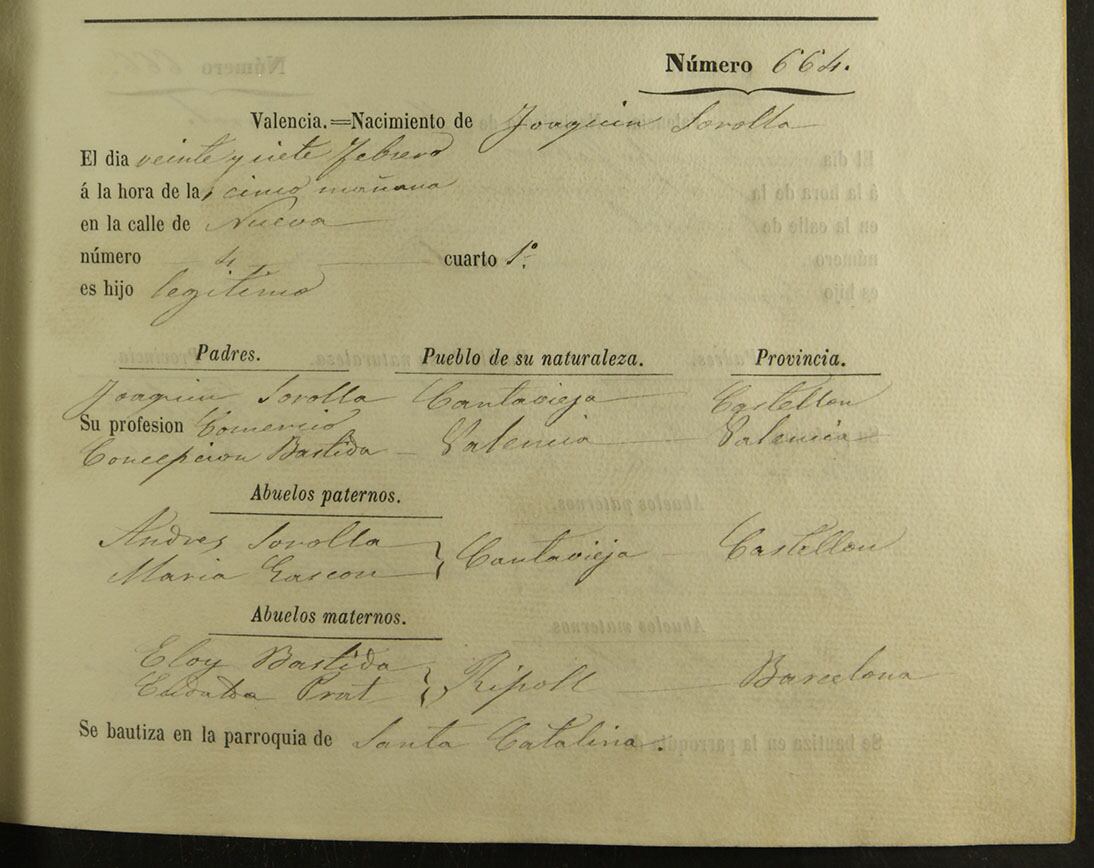 Número 664.
Valencia.=Nacimiento de Joaquin Sorolla
El dia veinte y siete Febrero
á la hora de la, cinco mañana
en la calle de Nueva
número 4 cuarto 1º.
es hijo legitimo
Padres. Pueblo de su naturaleza. Provincia.
Joaquin Sorolla Cantavieja Castellon
Su profesion Comercio
Concepcion Bastida Valencia Valencia
Abuelos paternos.
Andres Sorolla
Maria Gascon } Cantavieja Castellon
Abuelos maternos.
Eloy Bastida
Prat } Ripoll Barcelona
Se bautiza en la parroquia de Santa Catalina.